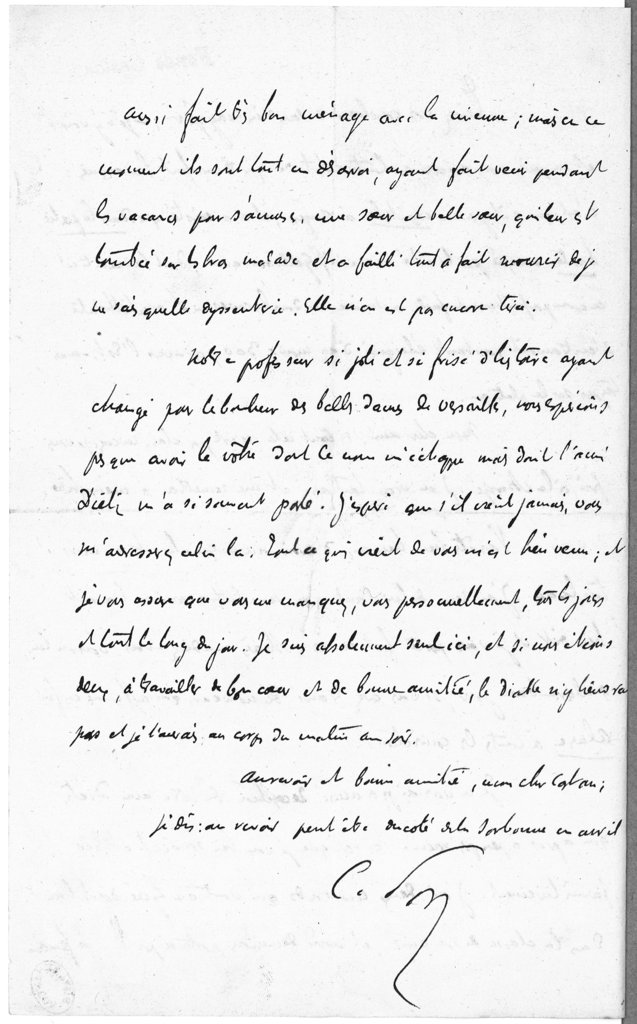 aussi fait très bon ménage avec la mienne ; mais en ce
moment ils sont tout en désarroi, ayant fait venir pendant
les vacances pour s'amuser, une sœur et belle sœur, qui leur est
tombée sur les bras malade et a failli tout à fait mourir de je
ne sais quelle dyssenterie. Elle n'en est pas encore tirée.
Notre professeur si joli et si frisé d'histoire ayant
changé pour le bonheur des belles dames de Versailles, nous espérions
presque avoir le vôtre dont le nom m'échappe mais dont l'ami
Dietz m'a si souvent parlé. J'espère que s'il vient jamais, vous
m'adresserez celui là. Tout ce qui vient de vous m'est bien venu ; et
je vous assure que vous me manquez, vous personnellement, tous les jours
et tout le long du jour. Je suis absolument seul ici, et si nous étions
deux, à travailler de bon cœur et de bonne amitié, le diable n'y tiendra
pas et je l'aurais au corps du matin au soir.
au revoir et bonne amitié, mon cher
je dis : au revoir peut être du coté de la Sorbonne en avril
C.